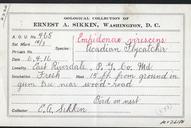 OOLOGICAL COLLECTION OF
ERNEST A. SIKKEN, WASHINGTON, D. C.
A. O. U. No. 465 Empidonax virescens
Set Mark Acadian Flycatcher
Date 6.4.16
Locality East Riverdale, P. G. Co, Md.
Incubation Fresh Nest 15 ft from ground in
gum tree near wood-road
Bird on nest
Collector E. A. Sikken